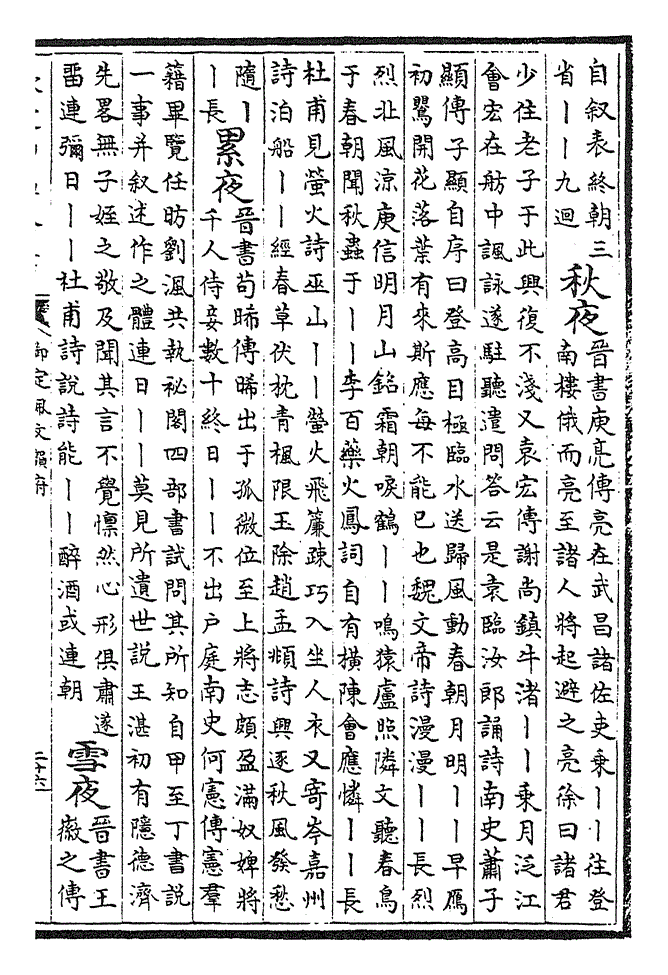 自叙表終朝三
省丨丨九迴
秋夜
晉書庾亮傳亮在武昌諸佐吏乗丨丨往登
南樓俄而亮至諸人將起避之亮徐曰諸君
少住老子于此興復不淺又袁宏傳謝尚鎮牛渚丨丨乗月泛江
會宏在舫中諷詠遂駐聽遣問答云是袁臨汝郎誦詩南史蕭子
顯傳子顯自序曰登高目極臨水送歸風動春朝月明丨丨早鴈
初鸎開花落葉有來斯應每不能已也魏文帝詩漫漫丨丨長烈
烈北風涼庾信明月山銘霜朝唳鶴丨丨鳴猿盧照隣文聽春鳥
于春朝聞秋蟲于丨丨李百藥火鳳詞自有橫陳會應憐丨丨長
杜甫見螢火詩巫山丨丨螢火飛簾疎巧入坐人衣又寄岑嘉州
詩泊船丨丨經春草伏枕青楓限玉除趙孟頫詩興逐秋風發愁
隨丨
丨長
累夜
晉書苟晞傳晞出于孤微位至上將志頗盈滿奴婢將
千人侍妾數十終日丨丨不出户庭南史何憲傳憲羣
籍畢覽任昉劉渢共執祕閣四部書試問其所知自甲至丁書說
一事并叙述作之體連日丨丨莫見所遺世說王湛初有隱德濟
先畧無子姪之敬及聞其言不覺懔然心形俱肅遂
畱連彌日丨丨杜甫詩說詩能丨丨醉酒或連朝
雪夜
晉書王
徽之傳
御定佩文韻府